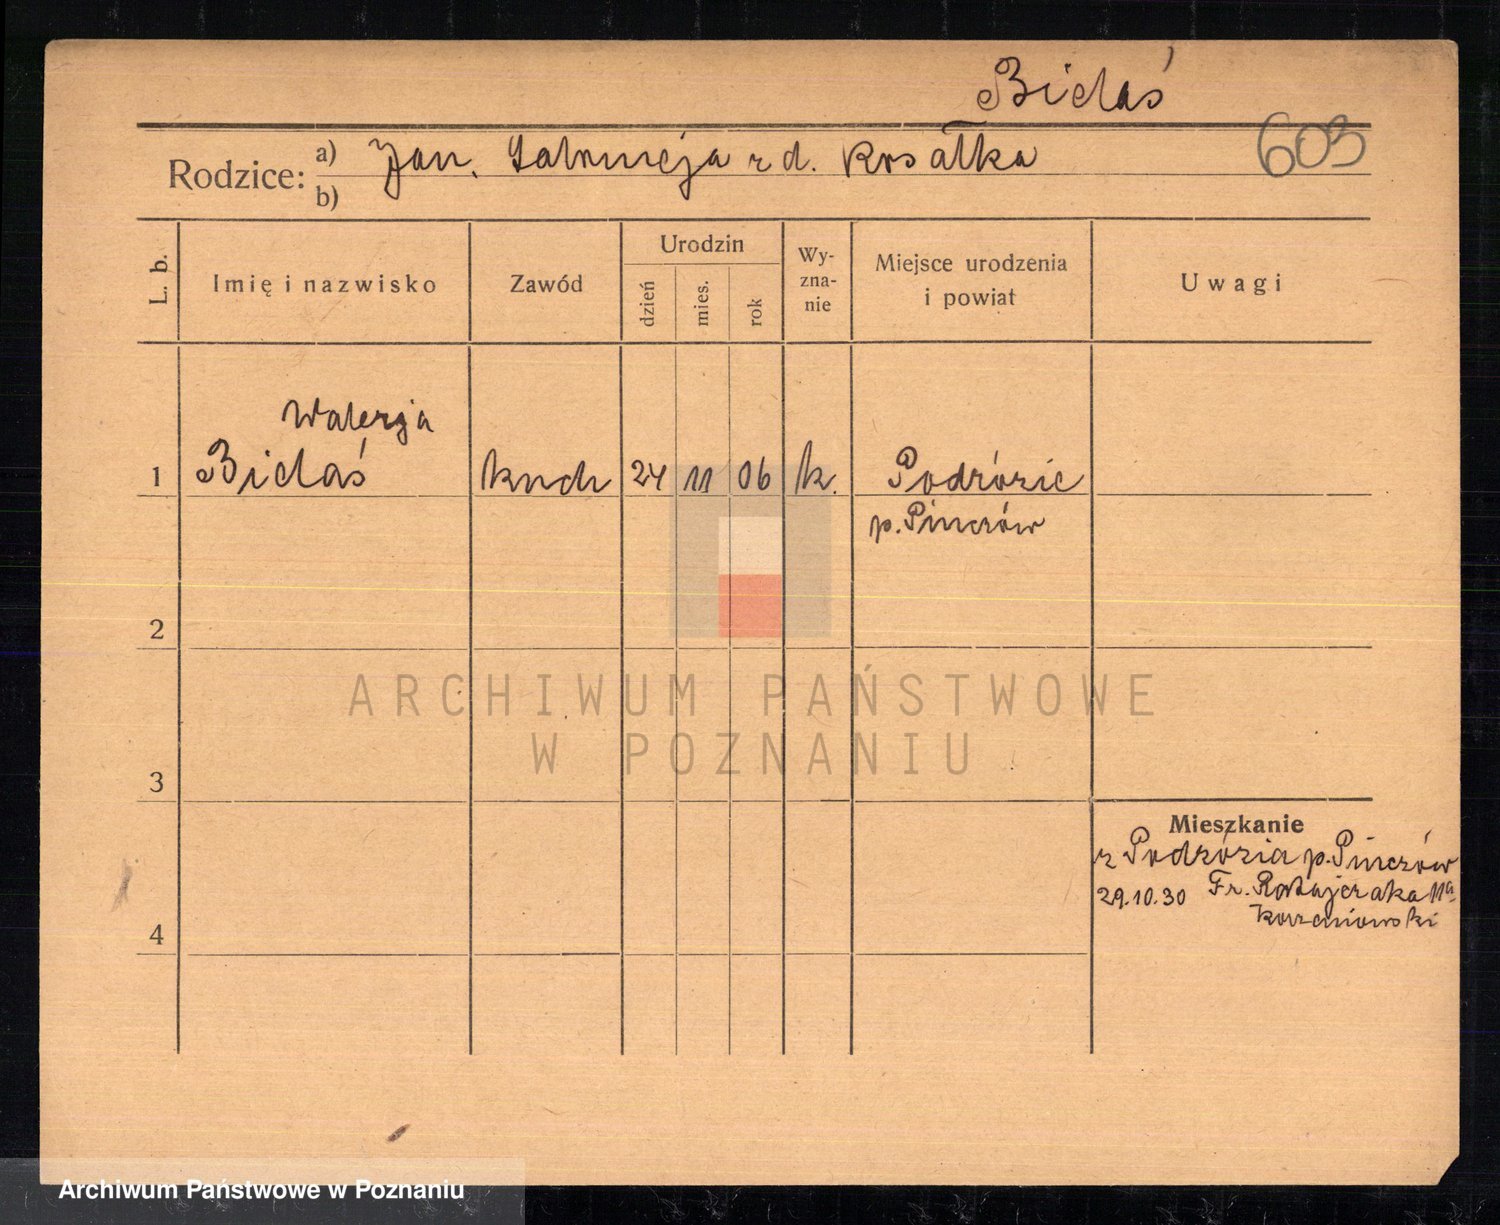 Bidaś
Rodzice: a) Jan, Salomeja z d. Kosałka
b)
603
L. b.
Imię i nazwisko
Zawód
Urodzin
dzień
mies.
rok
Wy-
zna-
nie
Miejsce urodzenia
i powiat
Uwagi
Walerja
1 Bidaś kuch 24 11 06 k. Podrózie
p. Pinczów
2
ARCHIWUM PAŃSTWOWE
W POZNANIU
3
Mieszkanie
z Podrózia p. Pinczów
29.10.30 Fr. Ratajczaka 11a
Korzeniowski
4
Archiwum Państwowe w Poznaniu